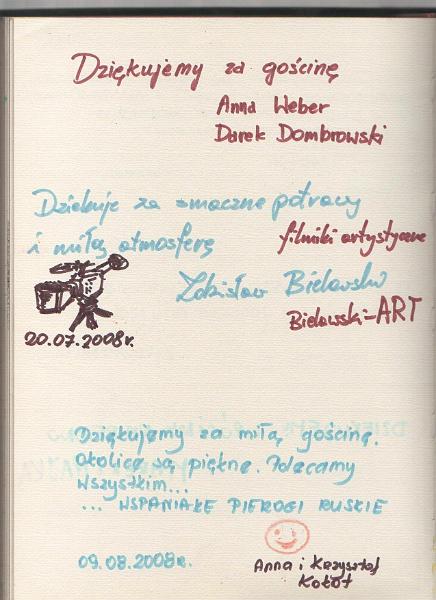 Dziękujemy za gościnę
Anna Weber
Darek Dombrowski
Dziekuje za smaczne potrawy
i miłą atmosferę
filmiki artystyczne
Zdzisław Bielawski
Bielawski-ART
20.07.2008r.
Dziękujemy za miłą gościnę.
Okolice są piękne. Polecamy
wszystkim...
... WSPANIAŁE PIEROGI RUSKIE
09.08.2008r.
Anna i Krzysztof
Kokot